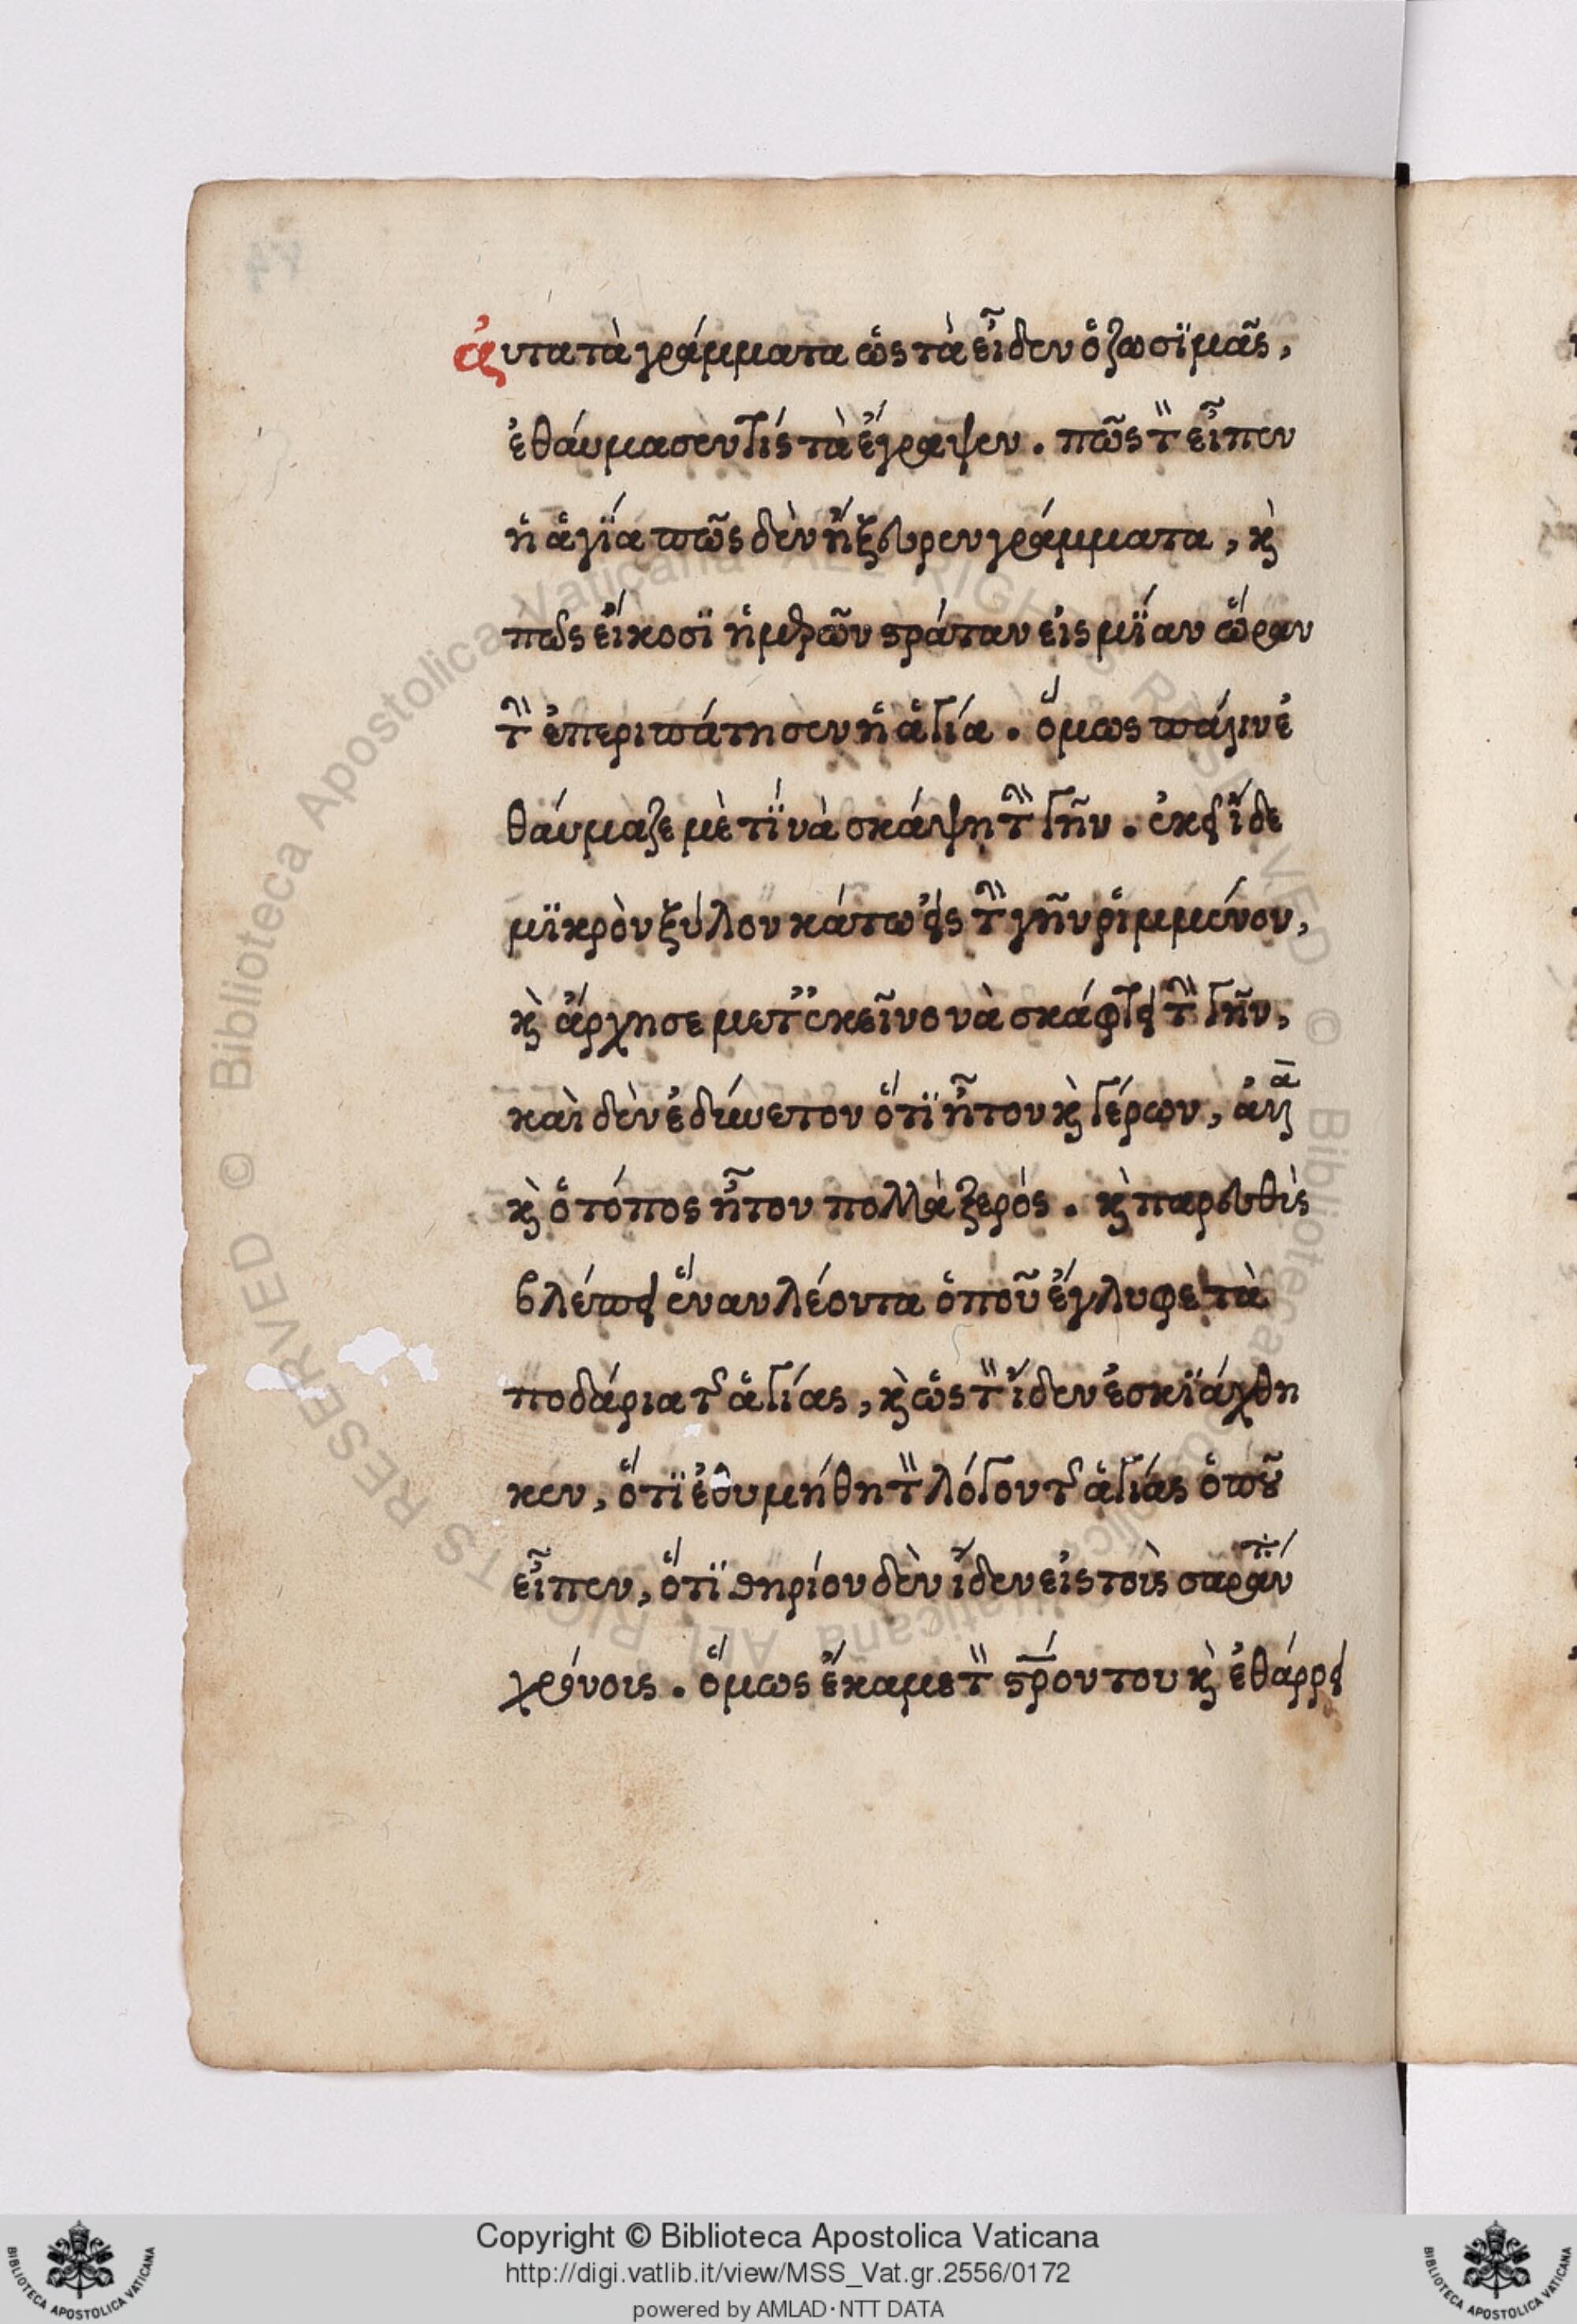 αὐτα τὰ γράμματα ὡς τὰ εἶδεν ὁ ζωσϊμᾶς,
ἐθαύμασεν τίς τὰ ἔγραψεν. πῶς τ̏ εἶπεν
ἡ ἁγΐα πῶς δὲν ἤξευρεν γράμματα, κὶ
πῶς εἴκοσϊ ἡμερῶν στράταν εἰς μΐαν ὥραν
τ̏ ἐπεριπάτησεν ἡ ἁγία. ὅμως πάλιν ἐ
θαύμαζε μὲ τΐ νὰ σκάψη τ̏ γῆν. ἐκεῖ ἴδε
μϊκρὸν ξύλον κάτω εἰς τ̏ γῆν ῥιμμένον,
κὶ ἄρχησε μετ' ἐκεῖνο νὰ σκάφτει τ̏ γῆν,
καὶ δὲν ἐδύνετον ὅτϊ ἦτον κὶ γέρων,
κὶ ὁ τόπος ἦτον πολλὰ ξερός. κὶ παρευθὶς
βλέπει ἕναν λέοντα ὁποῦ ἔγλυφε τὰ
ποδάρια τ͂ ἁγίας, κὶ ὡς τ̏ ἴδεν ἐσκϊάχθη
κεν, ὅτϊ ἐθυμήθη τ̏ λόγον τ͂ ἁγίας ὁποῦ
εἶπεν, ὅτϊ θηρίον δὲν ἴδεν εἰς τοὶς σαράντ
χρόνοις. ὅμως ἔκαμε τ̏ στρόν του κὶ ἐθάρρει
Copyright © Biblioteca Apostolica Vaticana
http://digi.vatlib.it/view/MSS_Vat.gr.2556/0172
powered by AMLAD·NTT DATA